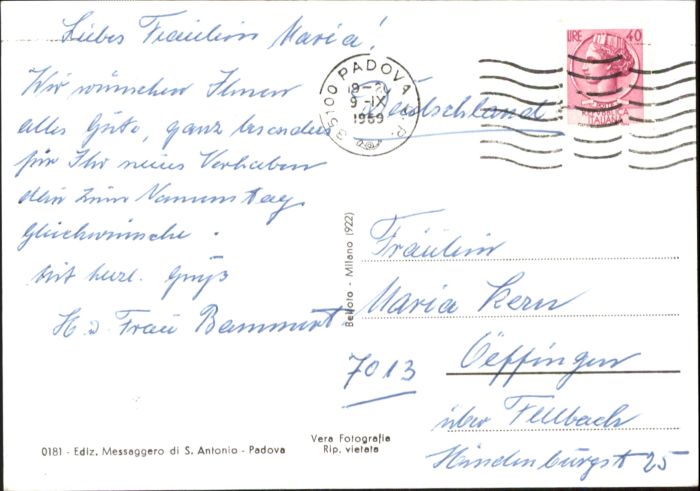 Liebes Fräulein Maria!
Wir wünschen Ihnen
alles Gute, ganz besonders
für Ihr neues Vorhaben
zum Namenstag
Glückwünsche.
Mit herzl. Gruß
H u Frau Bammert
35100 PADOVA
19-
9-IX
1969
LIRE 40
ITALIANA
Deutschland
Fräulein
Maria Kern
7013 Oeffingen
über Fellbach
Hindenburgst 25
Belfoto - Milano (922)
0181 - Ediz. Messaggero di S. Antonio - Padova
Vera Fotografia
Rip. vietata